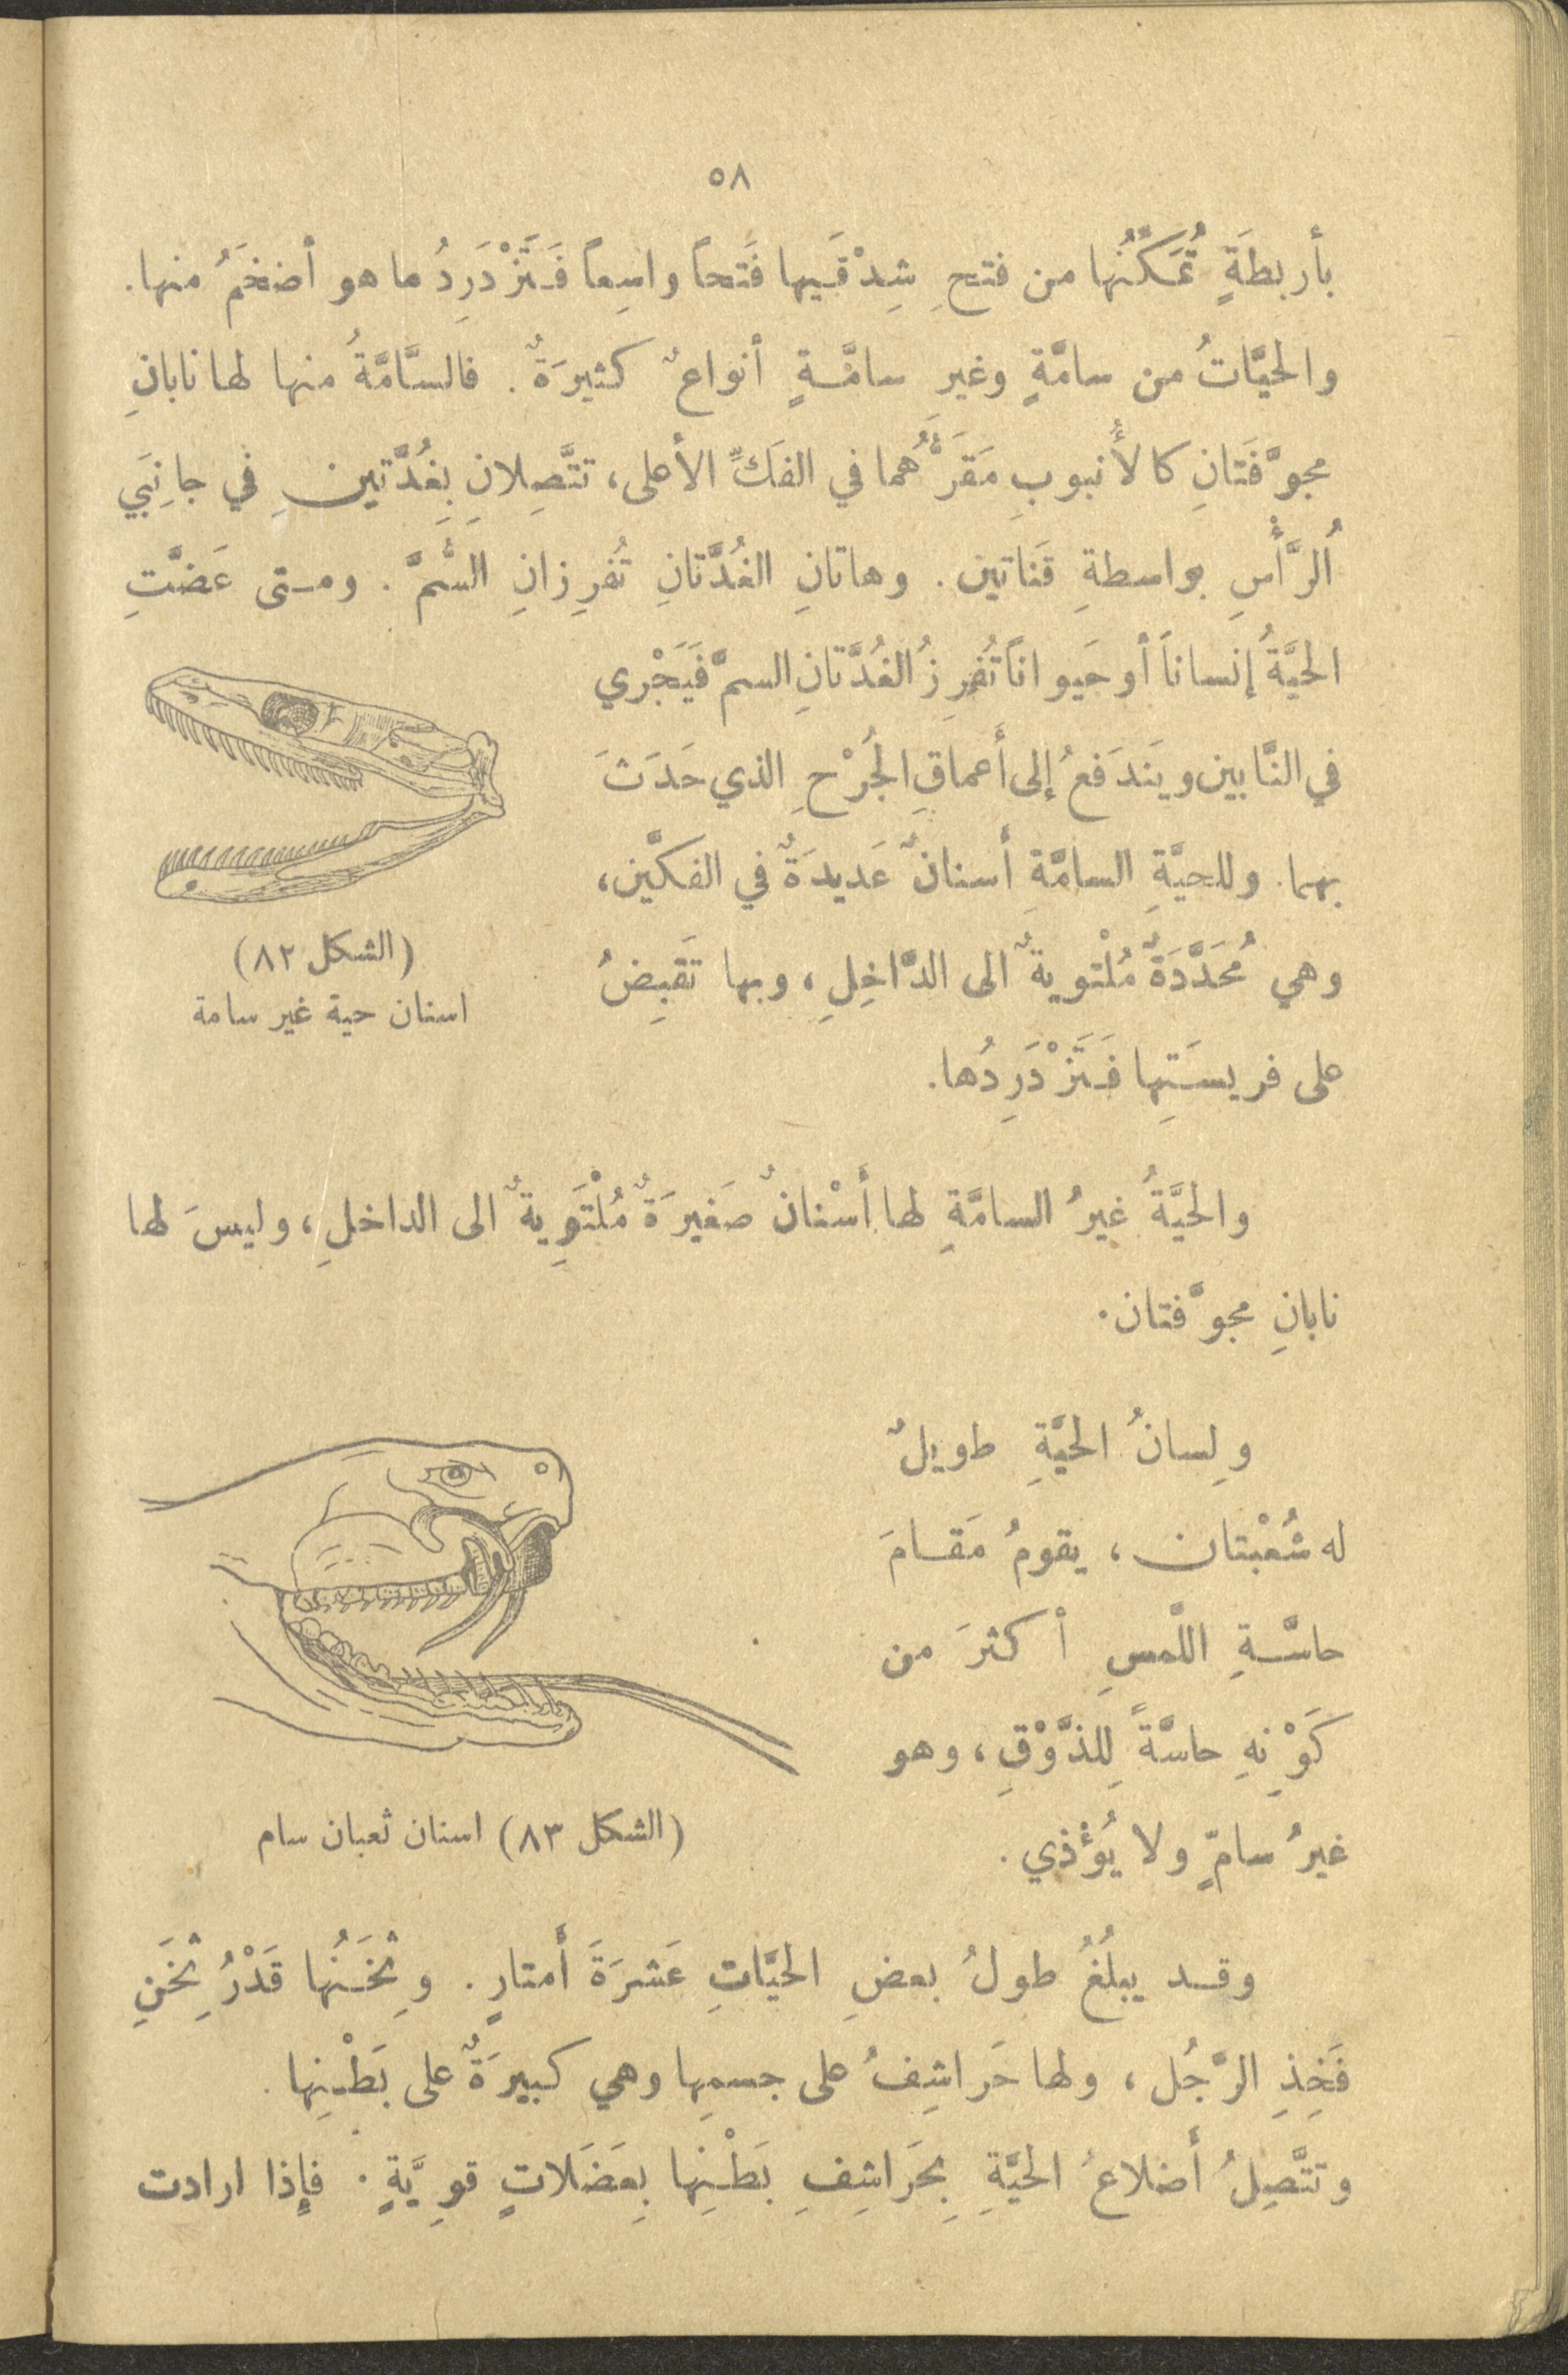 ٥٨
بأربطَةٍ تُمَكِّنُها من فتحِ شِدْقَيها فَتحاً واسِعاً فَتَزْدَرِدُ ما هو أضخَمُ منها.
والحيَّاتُ من سامَّةٍ وغيرِ سامَّةٍ أنواعٌ كثيرَةٌ. فالسَّامَّةُ منها لها نابانِ
مجوَّفَتانِ كالأُنبوبِ مَقَرُّهما في الفَكِّ الأعلى، تتَّصِلانِ بِغُدَّتينِ في جانِبَي
اُلرَّأْسِ بواسطةِ قَناتين. وهاتانِ الغُدَّتانِ تُفرِزانِ السُّمَّ. ومتى عَضَّتِ
الحيَّةُ إنساناً أو حَيواناً تُفرِزُ الغُدَّتانِ السمَّ فَيَجْري
في النَّابين ويَندَفعُ إلى أعماقِ الجُرْحِ الذي حَدَثَ
بهما. وللحيَّةِ السامَّةِ أسنانٌ عَديدَةٌ في الفكّين،
وهي مُحَدَّدَةٌ مُلْتويةٌ الى الدَّاخِلِ، وبها تَقبِضُ
على فريسَتِها فَتَزْدَرِدُها.
(الشكل ٨٢)
اسنان حية غير سامة
والحيَّةُ غيرُ السامَّةِ لها أسْنانٌ صَغيرَةٌ مُلْتَوِيةٌ الى الداخلِ، وليسَ لها
نابانِ مجوَّفتان.
ولِسانُ الحيَّةِ طويلٌ
له شُعْبتان، يقومُ مَقامَ
حاسَّةِ اللَّمسِ أكثرَ من
كَوْنِهِ حاسَّةً لِلذَّوْقِ، وهو
غيرُ سامٍّ ولا يُؤْذي.
(الشكل ٨٣) اسنان ثعبان سام
وقد يبلُغُ طولُ بعضِ الحيَّاتِ عَشرَةَ أمتارٍ. وثِخَنُها قَدْرُ ثِخَنِ
فَخِذِ الرَّجُل، ولها حَراشِفُ على جسمِها وهي كبيرَةٌ على بَطْنِها.
وتتَّصِلُ أضلاعُ الحيَّةِ بِحَراشِفِ بَطْنِها بِعَضَلاتٍ قوِيَّةٍ. فإِذا ارادت